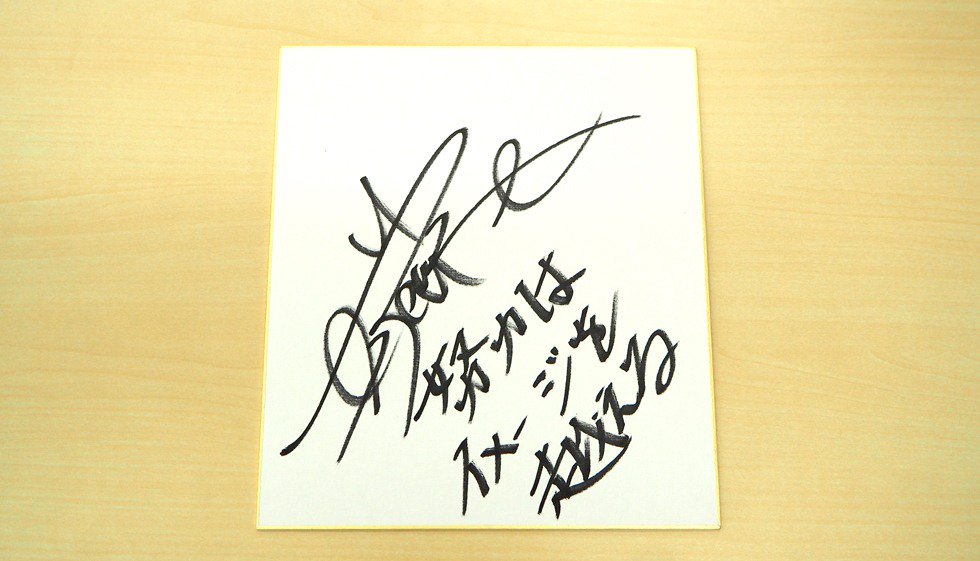 努力は
イメージを
越える